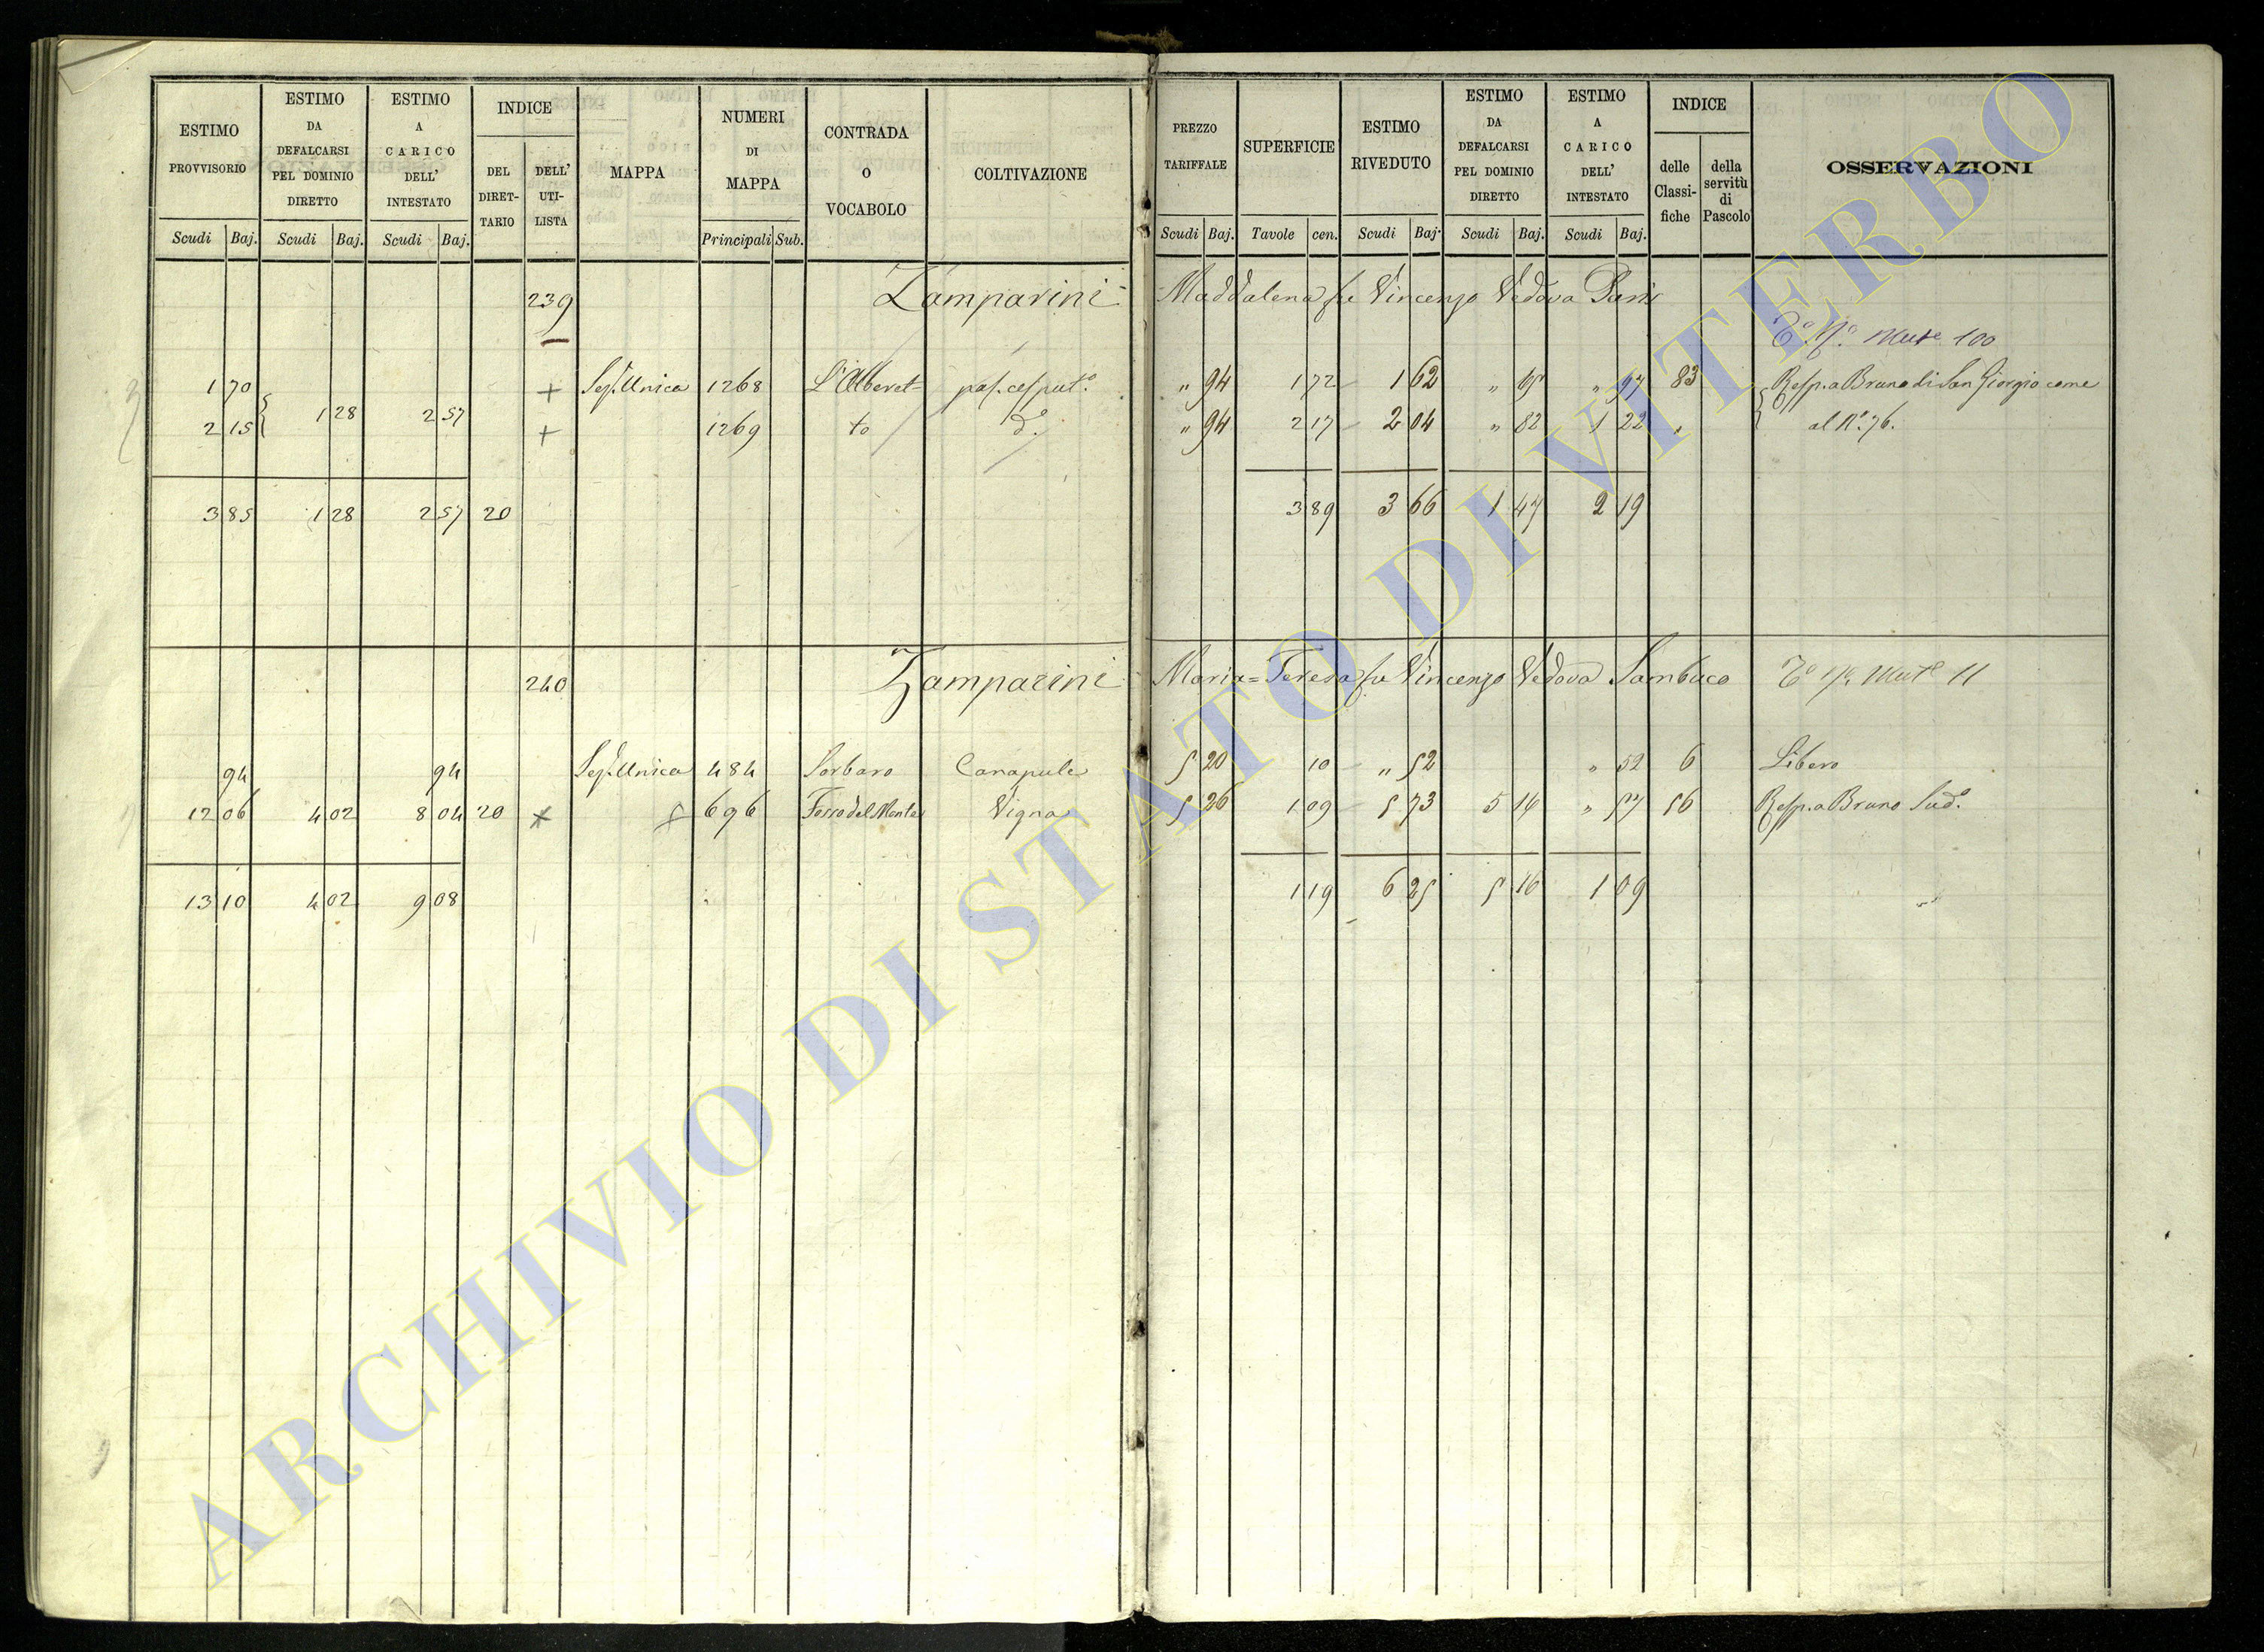 ESTIMO PROVVISORIO
ESTIMO DA DEFALCARSI PEL DOMINIO DIRETTO
ESTIMO A CARICO DELL' INTESTATO
INDICE
DEL DIRET- TARIO
DELL' UTI- LISTA
MAPPA
NUMERI DI MAPPA
CONTRADA O VOCABOLO
COLTIVAZIONE
PREZZO TARIFFALE
SUPERFICIE
ESTIMO RIVEDUTO
ESTIMO DA DEFALCARSI PEL DOMINIO DIRETTO
ESTIMO A CARICO DELL' INTESTATO
INDICE
delle Classi- fiche
della servitù di Pascolo
OSSERVAZIONI
Scudi Baj. Scudi Baj. Scudi Baj. Principali Sub. Scudi Baj. Tavole cen. Scudi Baj. Scudi Baj. Scudi Baj.
239 Zamparini Maddalena fu Vincenzo Vedova
100
1 70 + Sez. Unica 1268 L'Alberet- pas. cesput.o " 94 1 72 1 62 " 65 " 97 83 Resp. a Bruno di San Giorgio come
1 28 2 57
2 15 + 1269 to d.o " 94 2 17 2 04 " 82 1 22 " al N.o 76.
3 85 1 28 2 57 20 3 89 3 66 1 47 2 19
240 Zamparini Maria=Teresa fu Vincenzo Vedova Sambuco 11
94 94 Sez. Unica 484 Sorbaro Canapule 5 20 10 " 52 " 52 6 Libero
12 06 4 02 8 04 20 + 696 Fosso del Monte Vigna 5 26 1 09 5 73 5 16 " 57 56 Resp. a Bruno Sud.o
13 10 4 02 9 08 1 19 6 25 5 16 1 09
ARCHIVIO DI STATO DI VITERBO